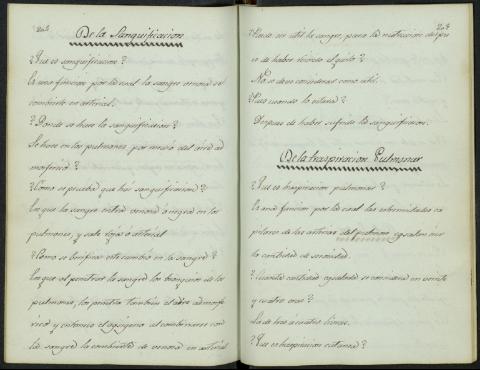 202
De la Sanguificacion
¿Que es sanguificacion?
Es una funcion por la cual la sangre venosa se
combierte en arterial.
¿Donde se hace la sanguificacion?
Se hace en los pulmones por medio del aire at
mosferico?
¿Como se prueba que hai sanguificacion?
En que la sangre entra venosa ó negra en los
pulmones, y sale roja ó arterial
¿Como se berifica este cambio en la sangre?
En que al penetrar la sangre los bronquios de los
pulmones, los penetra tambien el aire admosfe
rico y entonces el oxigeno al combinarse con
la sangre la combierte de venosa en arterial
203
¿Puede ser util la sangre, para la nutricion despu
es de haber recibido el quilo?
No se debe considerar como util.
¿Pues cuando lo estará?
Despues de haber sufrido la sanguificacion.
De la traspiracion Pulmonar
¿Que es traspiracion pulmonar?
Es una funcion por la cual las estremidades ca
pilares de las arterias del pulmon exsalan cier
ta cantidad de serosidad.
¿Cuanta cantidad exsalada se considera en veinte
y cuatro oras?
La de tres á cuatro libras.
¿Que es traspiracion cutanea?